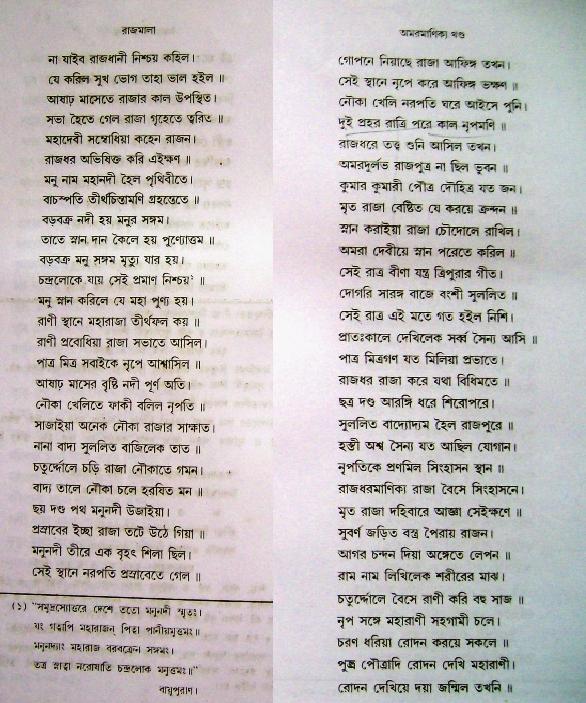 রাজমালা
না যাইব রাজধানী নিশ্চয় কহিল।
যে করিল সুখ ভোগ তাহা ভাল হইল॥
আষাঢ় মাসেতে রাজার কাল উপস্থিত।
সভা হৈতে গেল রাজা গৃহেতে ত্বরিত॥
মহাদেবী সম্বোধিয়া কহেন রাজন।
রাজধর অভিষিক্ত করি এইক্ষণ॥
মনু নাম মহানদী হৈল পৃথিবীতে।
বাচস্পতি তীর্থচিন্তামণি গ্রহন্তেতে॥
বড়বক্র নদী হয় মনুর সঙ্গম।
তাতে স্নান দান কৈলে হয় পুণ্যোত্তম॥
বড়বক্র মনু সঙ্গম মৃত্যু যার হয়।
চন্দ্রলোকে যায় সেই প্রমাণ নিশ্চয়॥
মনু স্নান করিলে যে মহা পুণ্য হয়।
রাণী স্থানে মহারাজা তীর্থফল কয়॥
রাণী প্রবোধিয়া রাজা সভাতে আসিল।
পাত্র মিত্র সবাইকে নৃপে আশ্বাসিল॥
আষাঢ় মাসের বৃষ্টি নদী পূর্ণ অতি।
নৌকা খেলিতে ফাকী বলিল নৃপতি॥
সাজাইয়া অনেক নৌকা রাজার সাক্ষাত।
নানা বাদ্য সুললিত বাজিলেক তাত॥
চতুর্দ্দোলে চড়ি রাজা নৌকাতে গমন।
বাদ্য তালে নৌকা চলে হরষিত মন॥
ছয় দণ্ড পথ মনুনদী উজাইয়া।
প্রস্রাবের ইচ্ছা রাজা তটে উঠে গিয়া॥
মনুনদী তীরে এক বৃহৎ শিলা ছিল।
সেই স্থানে নরপতি প্রস্রাবেতে গেল॥
(১) "সমুদ্রস্যোত্তরে দেশে ততো মনুনদী স্মৃতঃ।
যং গত্বাপি মহারাজন্ পিত্বা পানীয়মুত্তমং॥
মনুনদ্যাং মহারাজ বরবক্রেন সঙ্গমং।
তত্র স্নাত্বা নরোযাতি চন্দ্রলোক মনুত্তমং॥"
বায়ুপুরাণ।
অমরমাণিক্য খণ্ড
গোপনে নিয়াছে রাজা আফিঙ্গ তখন।
সেই স্থানে নৃপে করে আফিঙ্গ ভক্ষণ॥
নৌকা খেলি নরপতি ঘরে আইসে পুনি।
দুই প্রহর রাত্রি পরে কাল নৃপমণি॥
রাজধরে তত্ত্ব শুনি আসিল তখন।
অমরদুর্লভ রাজপুত্র না ছিল ভুবন॥
কুমার কুমারী পৌত্র দৌহিত্র যত জন।
মৃত রাজা বেষ্টিত যে করয়ে ক্রন্দন॥
স্নান করাইয়া রাজা চৌদোলে রাখিল।
অমরা দেবীয়ে স্নান পরেতে করিল॥
সেই রাত্র বীণা যন্ত্র ত্রিপুরার গীত।
দোগরি সারঙ্গ বাজে বংশী সুললিত॥
সেই রাত্র এই মতে গত হইল নিশি।
প্রাতঃকালে দেখিলেক সর্ব্ব সৈন্য আসি॥
পাত্র মিত্রগণ যত মিলিয়া প্রভাতে।
রাজধর রাজা করে যথা বিধিমতে॥
ছত্র দণ্ড আরঙ্গি ধরে শিরোপরে।
সুললিত বাদ্যোদ্যম হৈল রাজপুরে॥
হস্তী অশ্ব সৈন্য যত আছিল যোগান।
নৃপতিকে প্রণমিল সিংহাসন স্থান॥
রাজধরমাণিক্য রাজা বৈসে সিংহাসনে।
মৃত রাজা দহিবারে আজ্ঞা সেইক্ষণে॥
সুবর্ণ জড়িত বস্ত্র পৈরায় রাজন।
আগর চন্দন দিয়া অঙ্গেতে লেপন॥
রাম নাম লিখিলেক শরীরের মাঝ।
চতুর্দ্দোলে বৈসে রাণী করি বহু সাজ॥
নৃপ সঙ্গে মহারাণী সহগামী চলে।
চরণ ধরিয়া রোদন করয়ে সকলে॥
পুত্র পৌত্রাদি রোদন দেখি মহারাণী।
রোদন দেখিয়ে দয়া জন্মিল তখনি॥